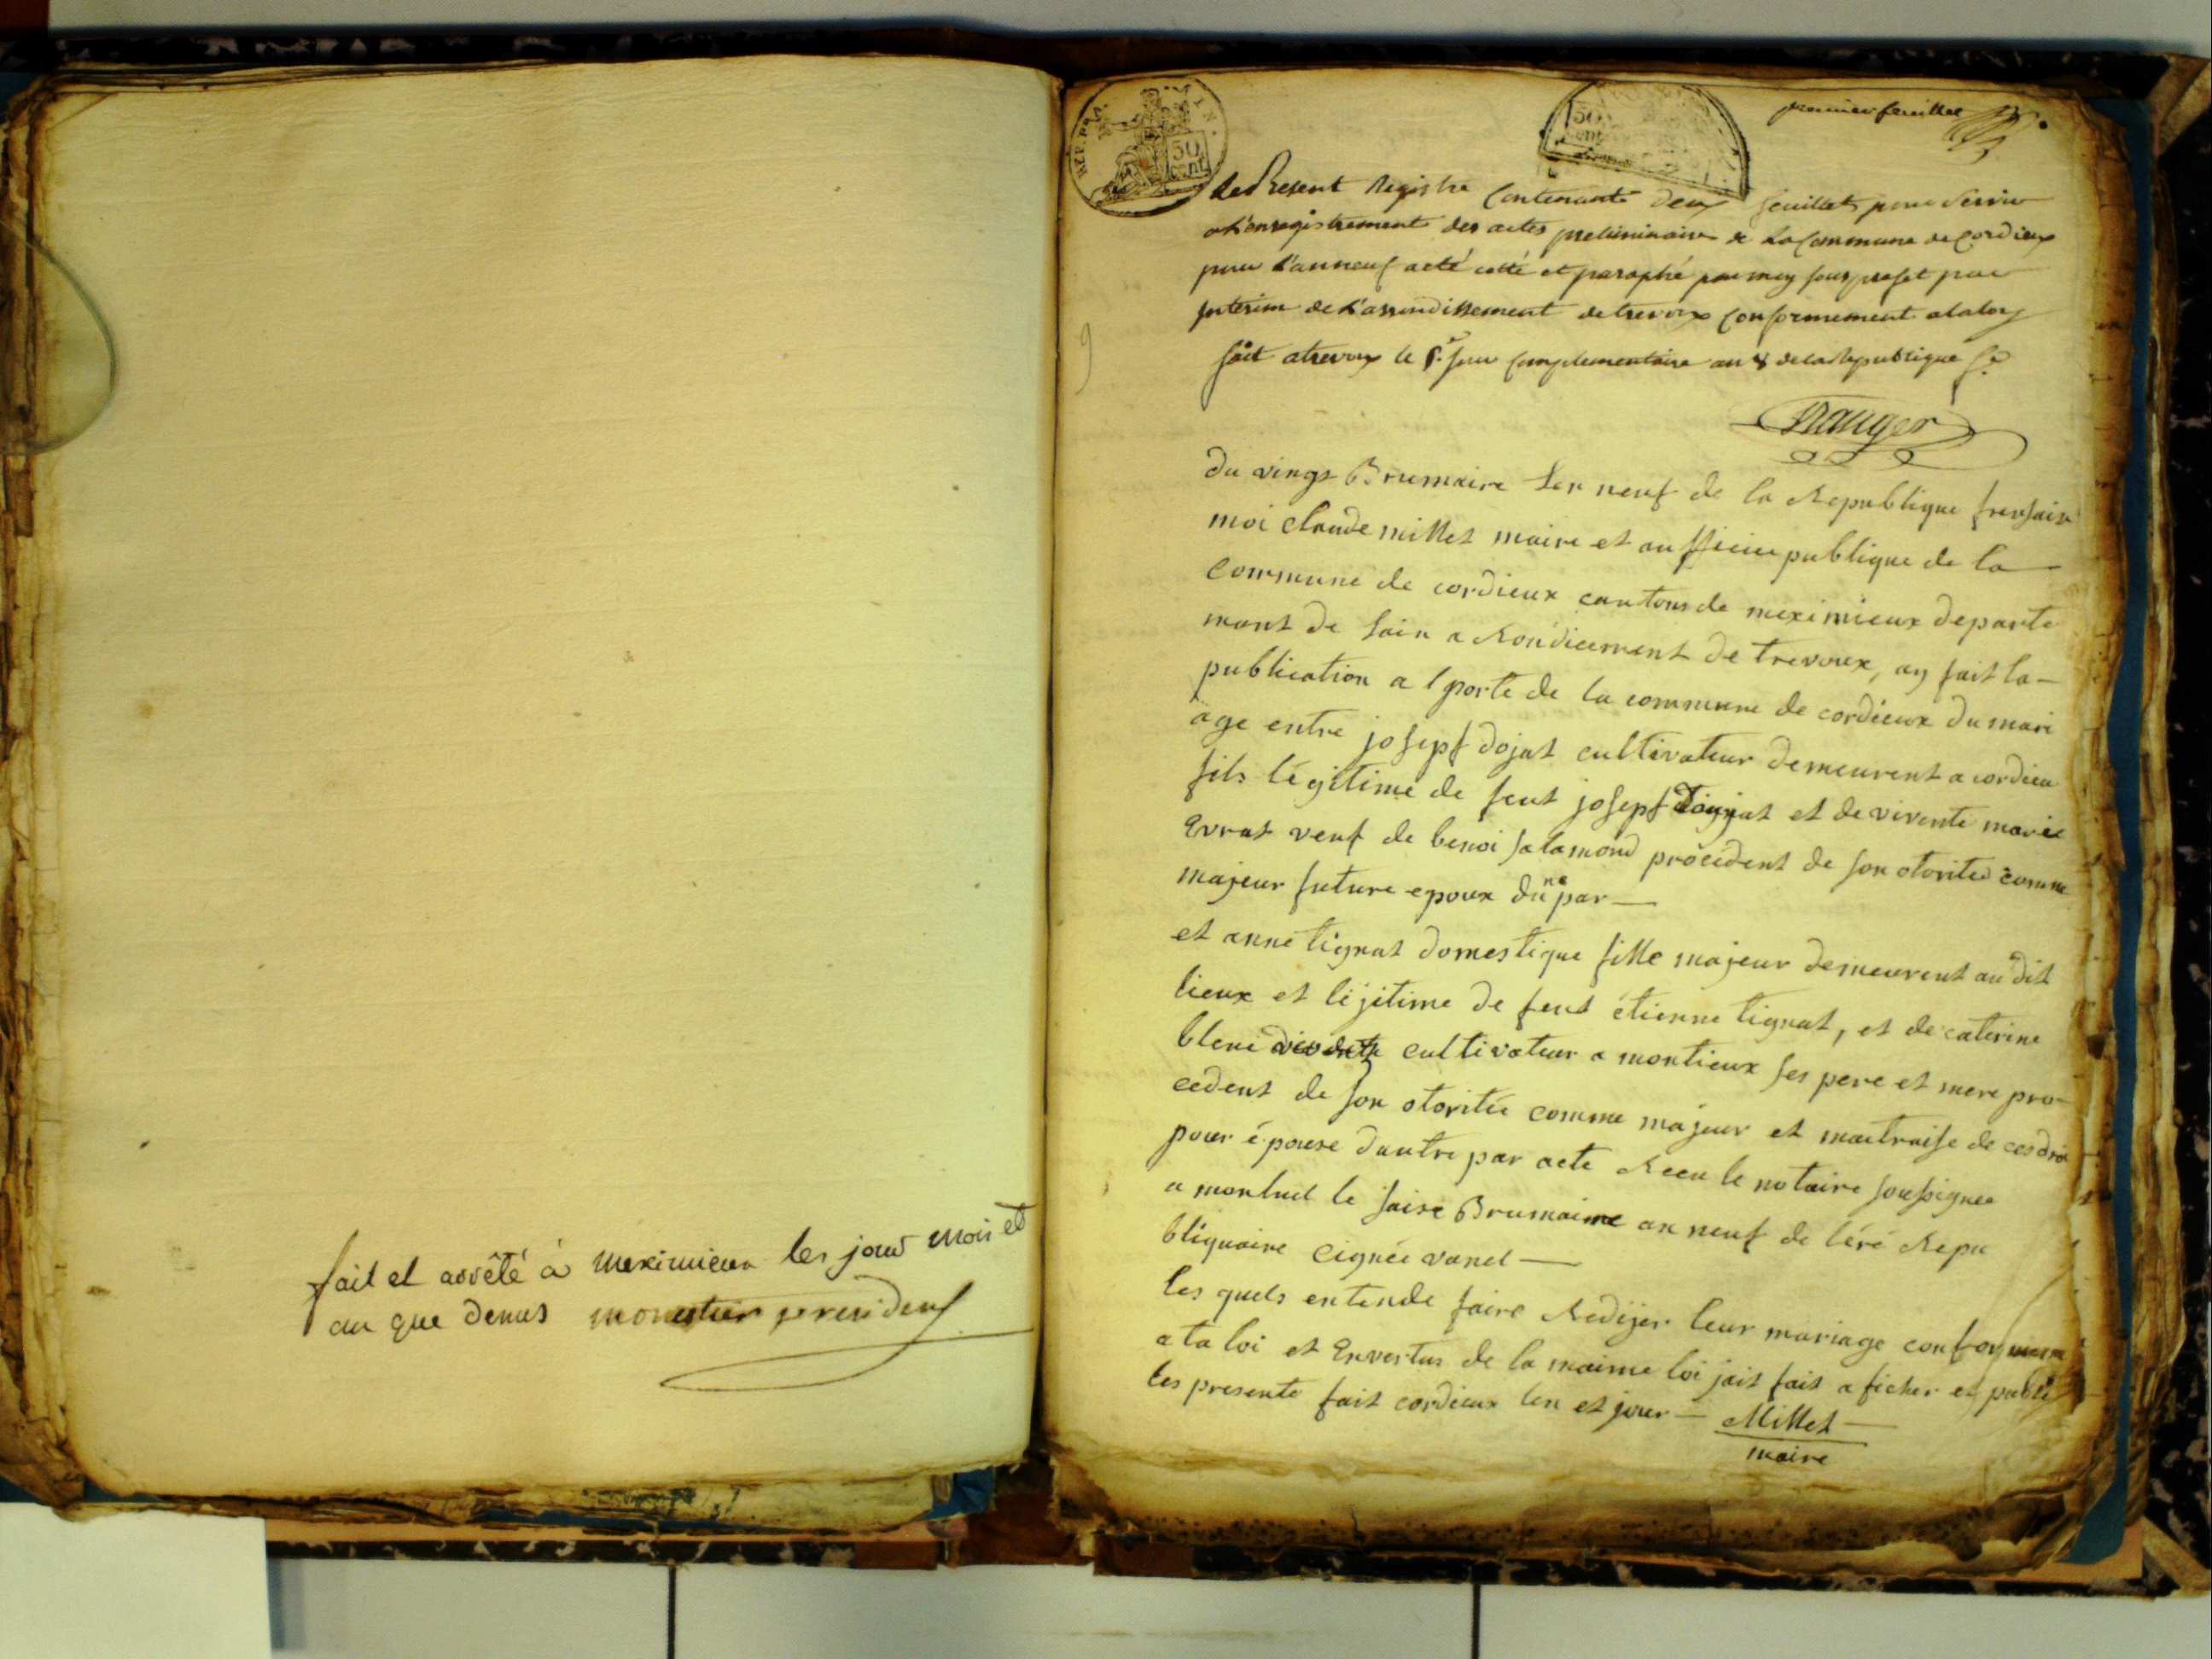 fait et arrêté à meximieux les jour mois et
an que denus monestier president
REP. FRA.
50
cent
50
premier feuillet
Le Present Registre Contenant deux feuillets pour Servir
a L'enregistrement des actes preliminaires de La Commune de Cordieux
pour L'an neuf acté cotté et paraphé par moy sous prefet par
interim de L'arrondissement de trevoux Conformement a la loy
fait a trevoux le 5.e jour Complementaire an 8 de la Republique
Nauger
Du vingt Brumaire Len neuf de la Republique fransaise
moi claude millet maire et aufficier publique de la
Commune de cordieux cantons de meximieux departe
mant de Lain a Rondicement de trevoux, ay fait la
publication a l porte de la commune de cordieux du mari
age entre josepf dojat cultivateur demeurent a cordieu
fils légitime de feut josepf et de vivente marie
Evrat veuf de benoi salamond procédent de son otorited comme
majeur future epoux dune par
et anne tignat domestique fille majeur demeurent au dit
lieux et lejitime de feut étienne tignat, et de caterine
blenc cultivateur a montieux ses pere et mere pro
cedent de son otoritée comme majeur et maitraise de ces droi
pour épouse dautre par acte Receu le notaire sousignee
a monluel le saise Brumaire an neuf de léré Repu
bliquaire cignée vanel
les quels entende faire Redijer leur mariage conformem
a la loi et Envertus de la maime loi jait fait aficher et publi
les presente fait cordieux len et jour Millet
maire